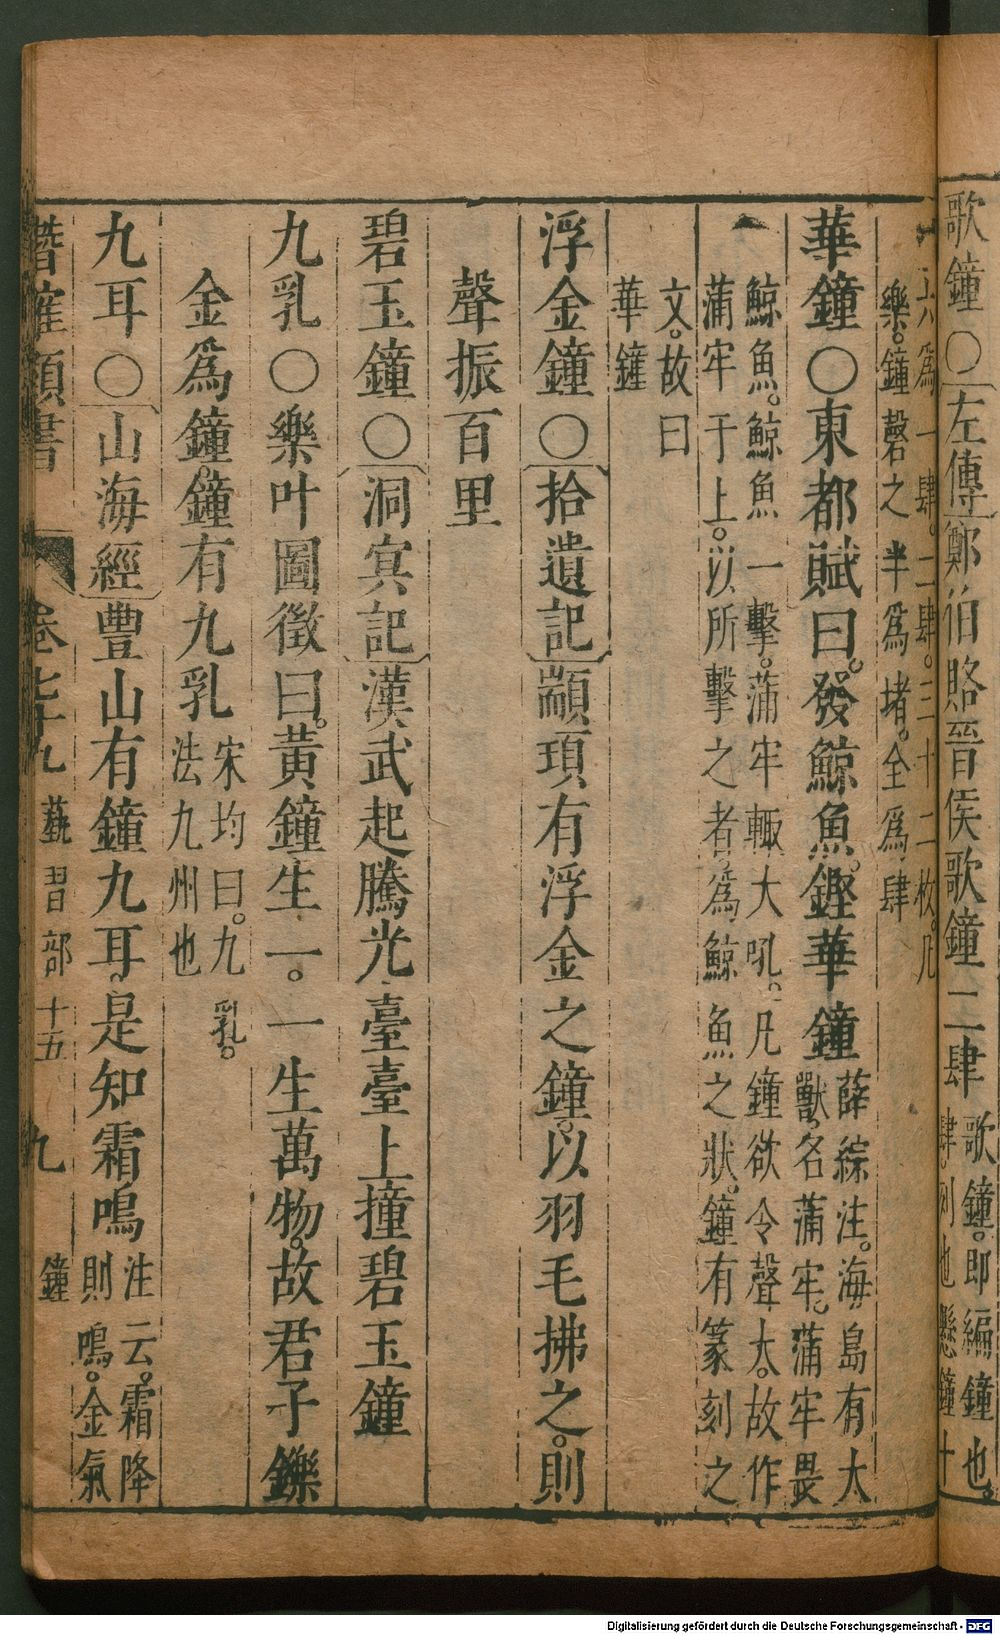 歌鐘○左傳鄭伯賂晉侯歌鐘二肆
歌鐘。即編鐘也。
肆。列也懸鐘十
六爲一肆。二肆。三十二枚。凡
樂。鐘磬之半爲堵。全爲肆
華鐘○東都賦曰。發鯨魚。鏗華鐘
薛綜注。海島有大
獸。名蒲牢。蒲牢畏
鯨魚。鯨魚一擊。蒲牢輙大吼。凡鐘欲令聲大。故作
蒲牢于上。以所擊之者。爲鯨魚之狀。鐘有篆刻之
文。故曰
華鐘
浮金鐘○拾遺記顓頊有浮金之鐘。以羽毛拂之。則
聲振百里
碧玉鐘○洞㝠記漢武起騰光臺臺上撞碧玉鐘
九乳○樂叶圖徵曰。黃鐘生一。一生萬物。故君子鑠
金爲鐘。鐘有九乳
宋均曰。九乳。
法九州也
九耳○山海經豐山有鐘九耳。是知霜鳴
注云。霜降
則鳴。金氣
潛確類書 卷七十九 藝習部十五 九 鐘
Digitalisierung gefördert durch die Deutsche Forschungsgemeinschaft - DFG